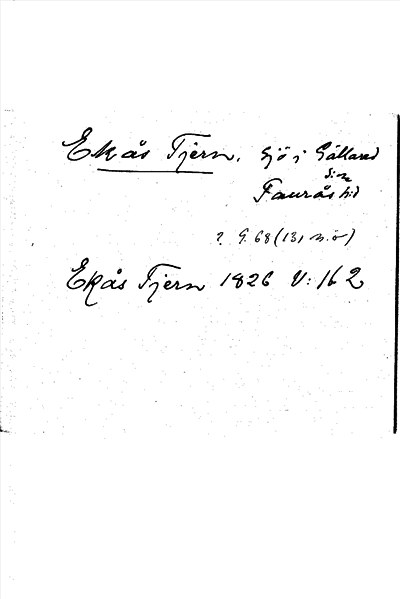 Ekås Tjern. sjö i Gällared
sn
Faurås hd
? G. 68 (131 n.ö)
Ekås Tjern 1826 V: 162